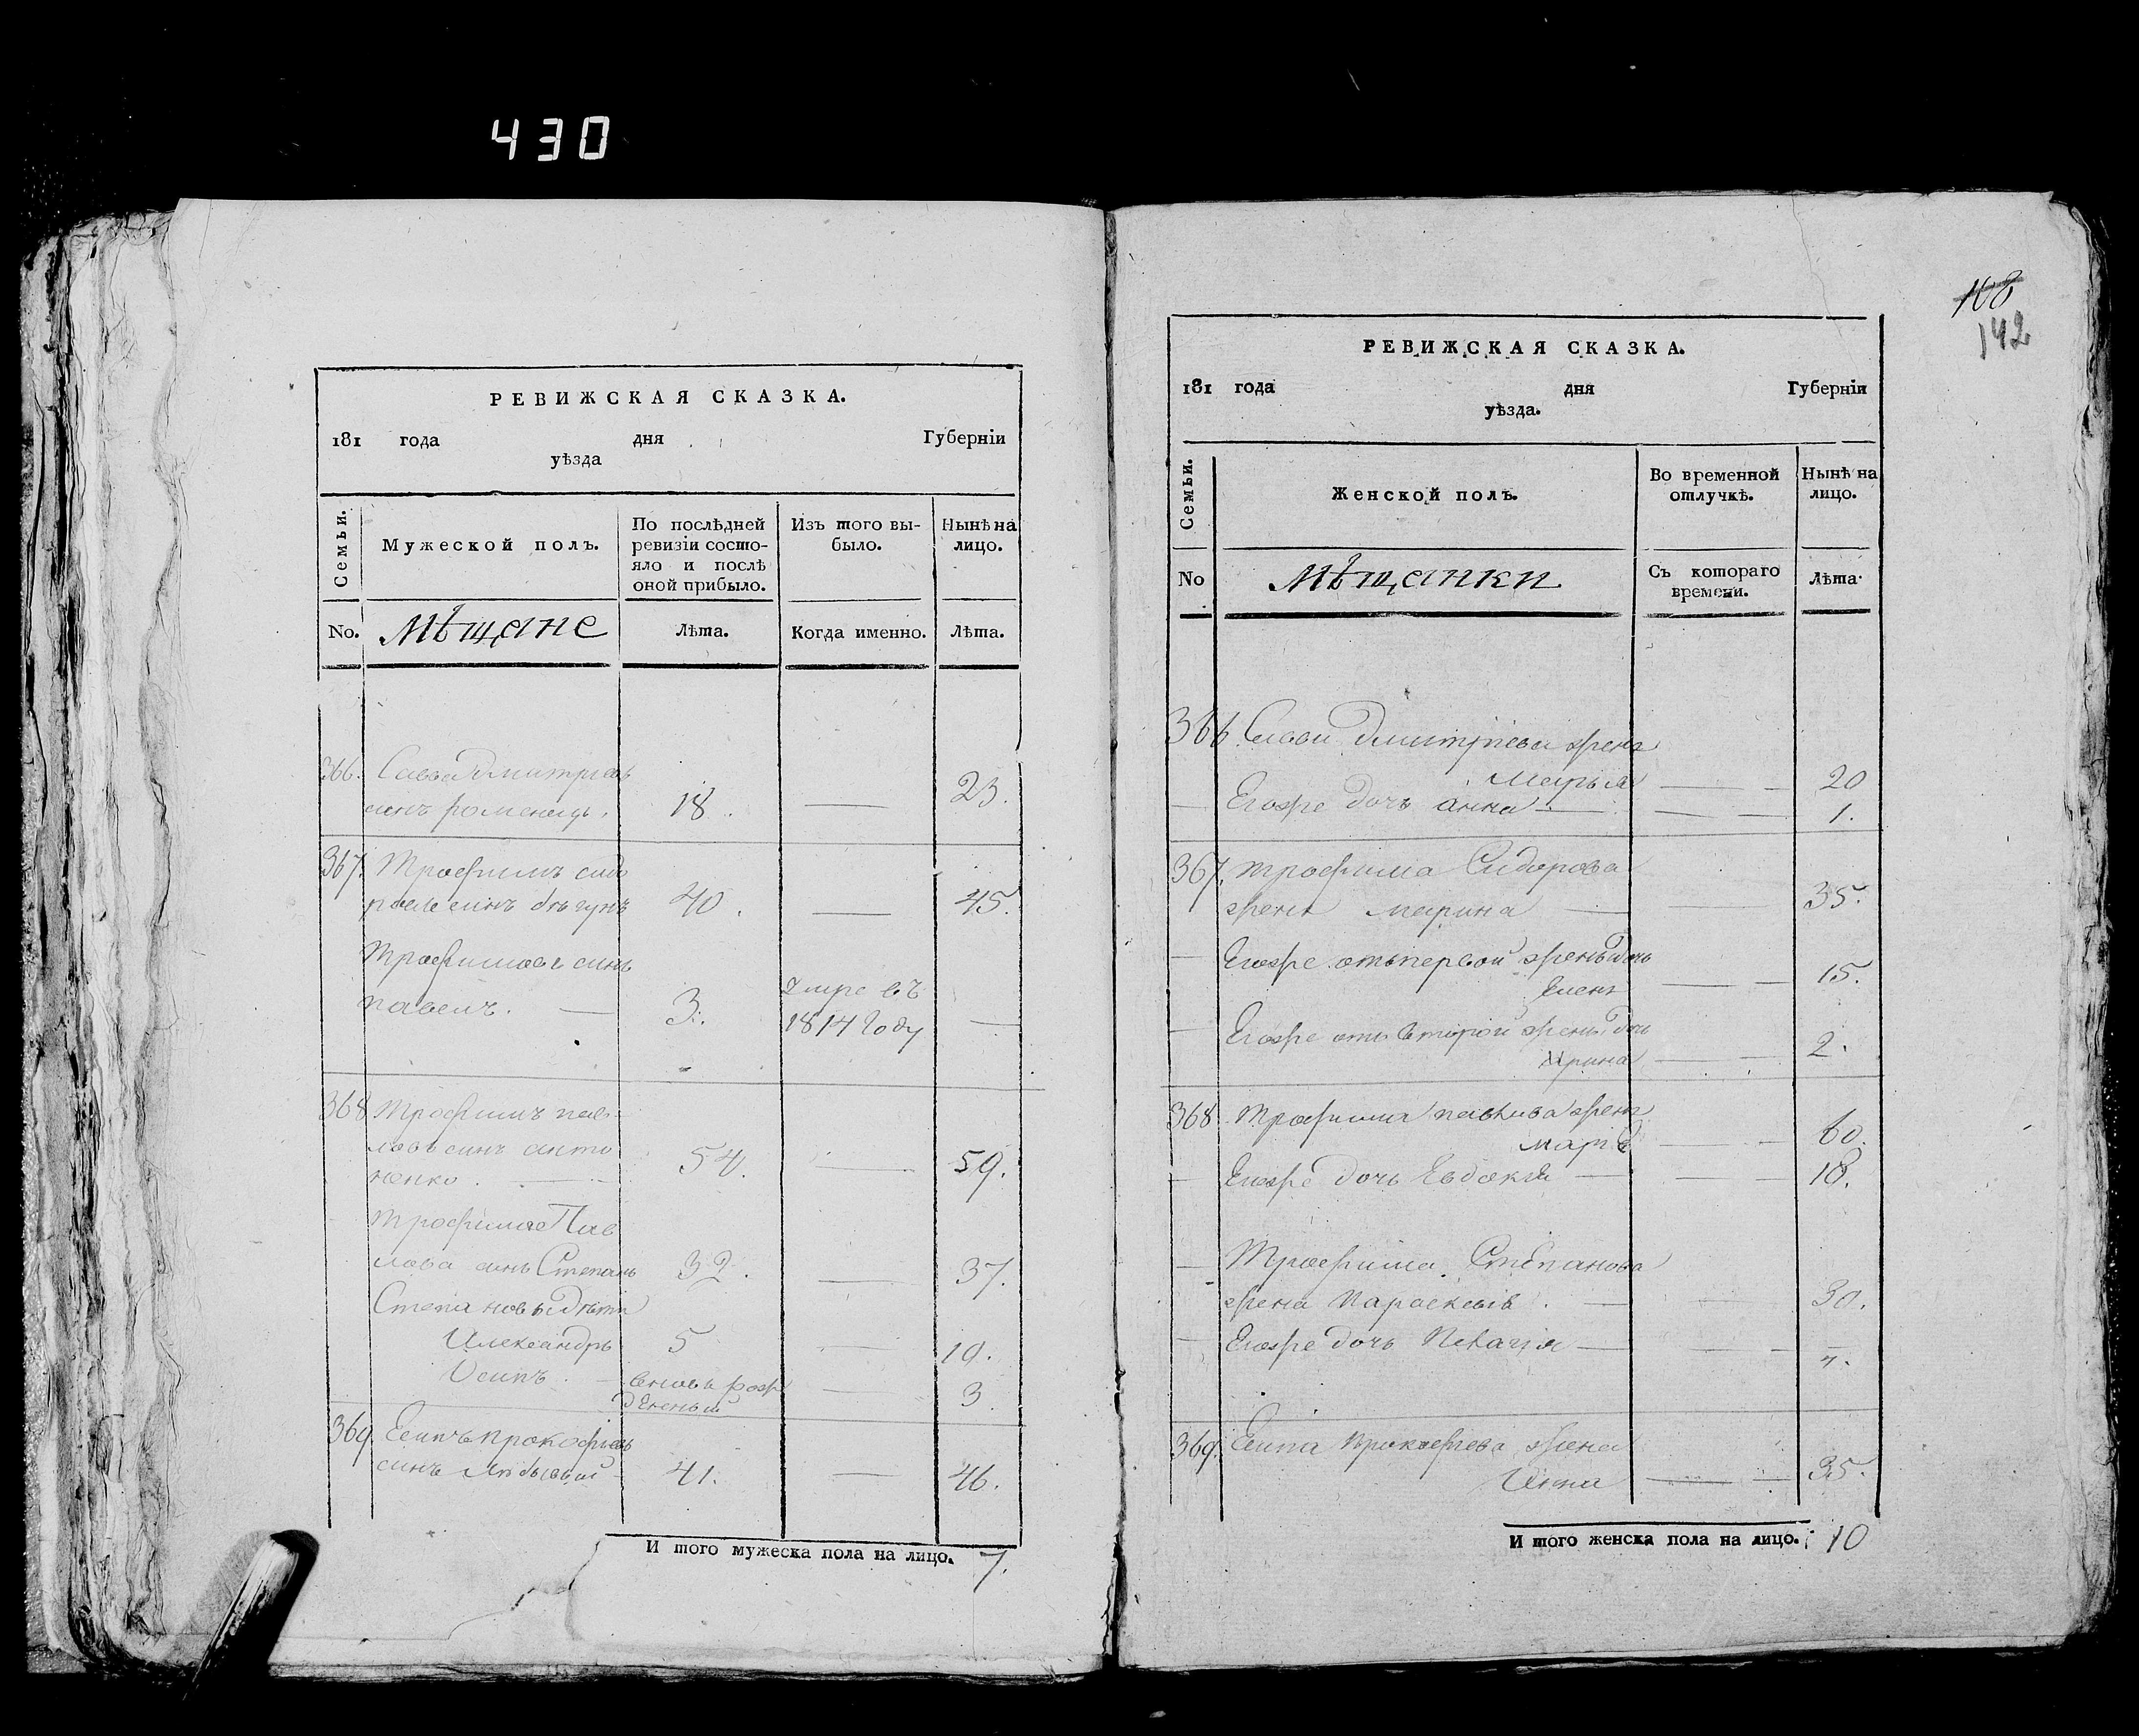 430
РЕВИЖСКАЯ СКАЗКА.
181 года дня Губерніи
уѣзда
Семьи.
Мужеской полъ.
По послѣдней
ревизіи состо-
яло и послѣ
оной прибыло.
Изъ того вы-
было.
Нынѣ на
лицо.
No. Мѣщане Лѣта. Когда именно. Лѣта.
366. Савва Дмитріевъ
синъ роменецъ. 18. — 23.
367. Трофимъ сидо
ровъ синъ бѣгунъ 40. — 45.
Трофимовъ синъ
павелъ. — 3. умре въ
1814 году —
368 Трофимъ пав-
ловъ синъ анто
ненко. — 54. — 59.
Трофима Пав
лова синъ Степанъ 32. — 37.
Степановы дѣти
Александръ 5 — 10.
Осипъ. — вновь рож
денный — 3
369. Есипъ прокофіевъ
синъ 41. — 46.
И того мужеска пола на лицо. 7.
108
142
РЕВИЖСКАЯ СКАЗКА.
181 года дня Губерніи
уѣзда.
Семьи.
Женской полъ.
Во временной
отлучкѣ.
Нынѣ на
лицо.
No Мѣщанки Съ котораго
времени. Лѣта
366. Савви Дмитріева жена
Марья — 20
— Егоже дочь анна — — 1.
367. трофима Сидорова
жена марина — — 35.
— Егоже отъ первой жены дочь
Елена — 15.
— Егоже отъ второй жены дочь
Ирина — 2.
368. Трофима павлова жена
марія — 60.
— Егоже дочь Евдокія — — 18.
— Трофима Степанова
жена параскевія. — — 30.
— Егоже дочь Пелагія — — 4.
369. Есипа прокофіева жена
Анна — 35.
И того женска пола на лицо. 10